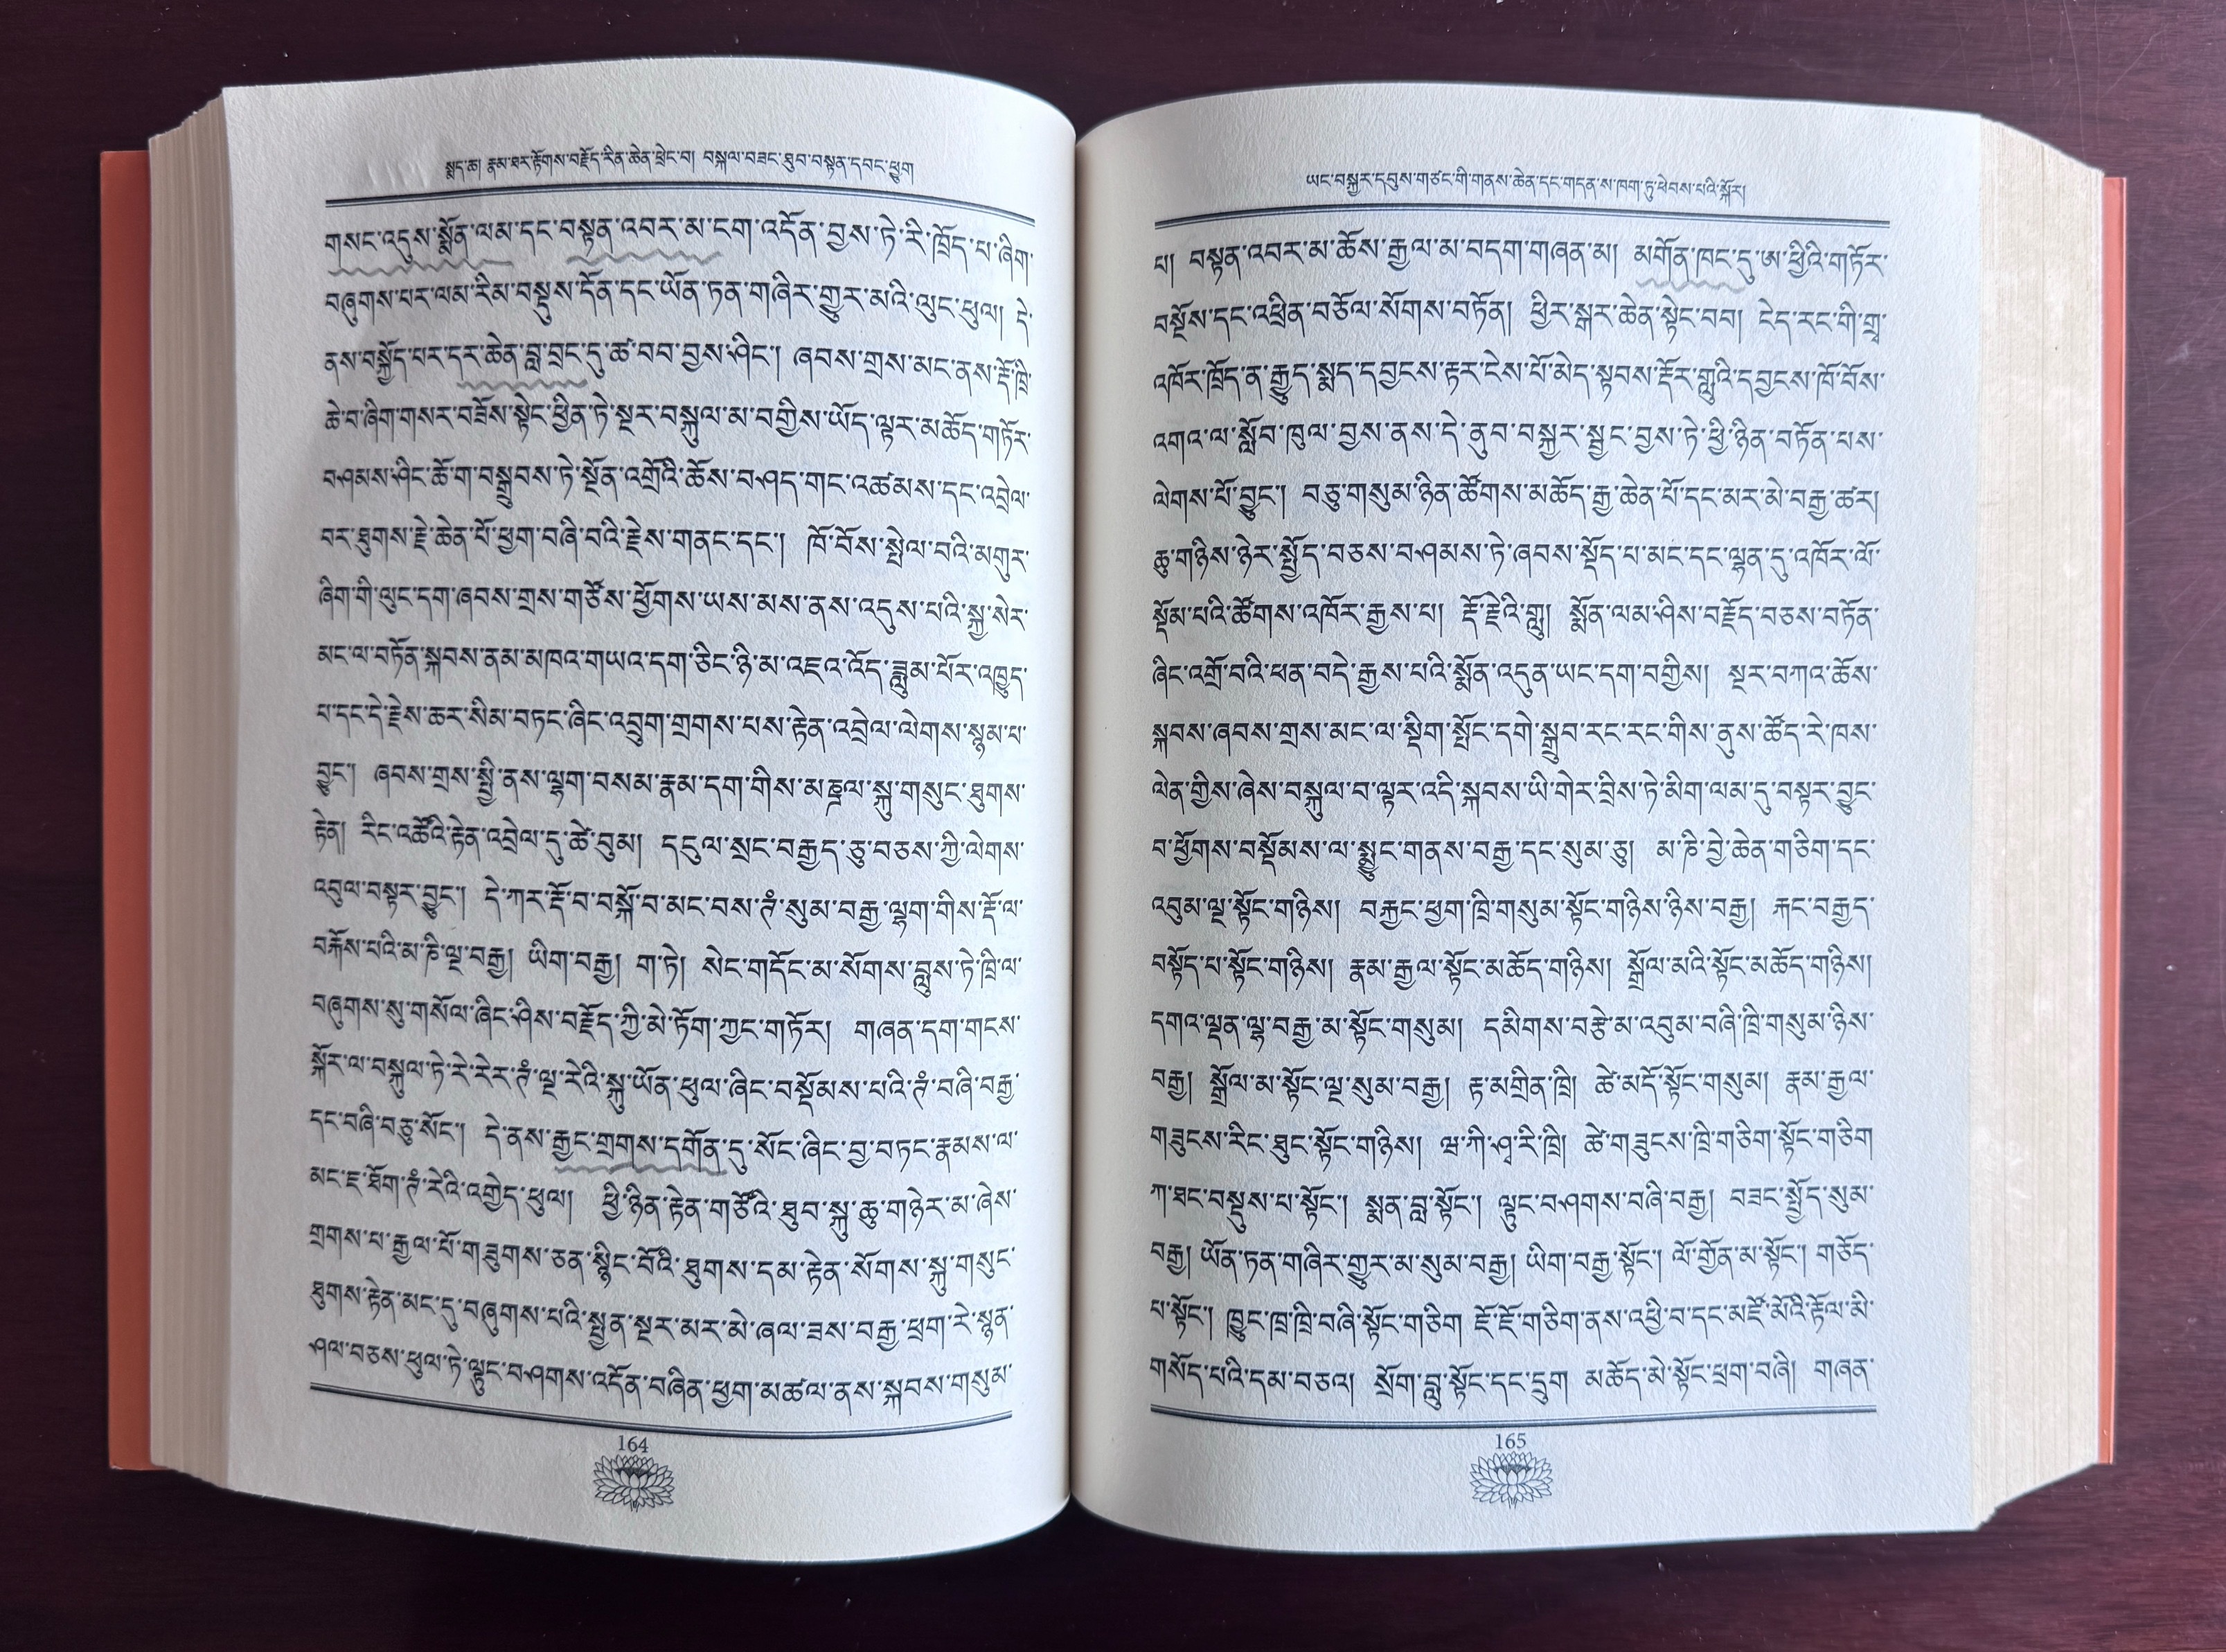 སྨད་ཆ། རྣམ་ཐར་རྟོགས་བརྗོད་རིན་ཆེན་ཕྲེང་བ། བསྐལ་བཟང་ཐུབ་བསྟན་དབང་ཕྱུག
གསང་འདུས་སྨོན་ལམ་དང་བསྟན་འབར་མ་ངག་འདོན་བྱས་ཏེ་རི་ཁྲོད་པ་ཞིག་
བཞུགས་པར་ལམ་རིམ་བསྡུས་དོན་དང་ཡོན་ཏན་གཞིར་གྱུར་མའི་ལུང་ཕུལ། དེ་
ནས་བསྐྱོད་པར་དར་ཆེན་བླ་བྲང་དུ་ཚ་བབ་བྱས་ཤིང་། ཞབས་གྲས་མང་ནས་རྡོ་ཁྲི་
ཆེ་བ་ཞིག་གསར་བཟོས་སྟེང་ཕྱིན་ཏེ་སྔར་བསྐུལ་མ་བགྱིས་ཡོད་ལྟར་མཆོད་གཏོར་
བཤམས་ཤིང་ཆོ་ག་བསྒྲུབས་ཏེ་སྔོན་འགྲོའི་ཆོས་བཤད་གང་འཚམས་དང་འབྲེལ་
བར་ཐུགས་རྗེ་ཆེན་པོ་ཕྱག་བཞི་བའི་རྗེས་གནང་དང་། ཁོ་བོས་སྤེལ་བའི་མགུར་
ཞིག་གི་ལུང་དག་ཞབས་གྲས་གཙོས་ཕྱོགས་ཡས་མས་ནས་འདུས་པའི་སྐྱ་སེར་
མང་ལ་བཏོན་སྐབས་ནམ་མཁའ་གཡའ་དག་ཅིང་ཉི་མ་འཇའ་འོད་ཟླུམ་པོར་འཁྱུད་
པ་དང་དེ་རྗེས་ཆར་སིམ་བཏང་ཞིང་འབྲུག་གྲགས་པས་རྟེན་འབྲེལ་ལེགས་སྙམ་པ་
བྱུང་། ཞབས་གྲས་སྤྱི་ནས་ལྷག་བསམ་རྣམ་དག་གིས་མཎྜལ་སྐུ་གསུང་ཐུགས་
རྟེན། རིང་འཚོའི་རྟེན་འབྲེལ་དུ་ཚེ་བུམ། དངུལ་སྲང་བརྒྱད་ཅུ་བཅས་ཀྱི་ལེགས་
འབུལ་བསྟར་བྱུང་། དེ་ཀར་རྡོ་བ་བསྐོ་བ་མང་བས་ཊཾ་སུམ་བརྒྱ་ལྷག་གིས་རྡོ་ལ་
བརྐོས་པའི་མ་ཎི་ལྔ་བརྒྱ། ཡིག་བརྒྱ། ག་ཏེ། སེང་གདོང་མ་སོགས་བླུས་ཏེ་ཁྲི་ལ་
བཞུགས་སུ་གསོལ་ཞིང་ཤིས་བརྗོད་ཀྱི་མེ་ཏོག་ཀྱང་གཏོར། གཞན་དག་གངས་
སྐོར་ལ་བསྐུལ་ཏེ་རེ་རེར་ཊཾ་ལྔ་རེའི་སྐུ་ཡོན་ཕུལ་ཞིང་བསྡོམས་པའི་ཊཾ་བཞི་བརྒྱ་
དང་བཞི་བཅུ་སོང་། དེ་ནས་རྒྱང་གྲགས་དགོན་དུ་སོང་ཞིང་བྱ་བཏང་རྣམས་ལ་
མང་ཇ་ཐོག་ཊཾ་རེའི་འགྱེད་ཕུལ། ཕྱི་ཉིན་རྟེན་གཙོའི་ཐུབ་སྐུ་ཆུ་གཉེར་མ་ཞེས་
གྲགས་པ་རྒྱལ་པོ་གཟུགས་ཅན་སྙིང་པོའི་ཐུགས་དམ་རྟེན་སོགས་སྐུ་གསུང་
ཐུགས་རྟེན་མང་དུ་བཞུགས་པའི་སྤྱན་སྔར་མར་མེ་ཞལ་ཟས་བརྒྱ་ཕྲག་རེ་སྙན་
ཤལ་བཅས་ཕུལ་ཏེ་ལྟུང་བཤགས་འདོན་བཞིན་ཕྱག་མཚལ་ནས་སྐབས་གསུམ་
164
ཡང་བསྐྱར་དབུས་གཙང་གི་གནས་ཆེན་དང་གདན་ས་ཁག་ཏུ་ཕེབས་པའི་སྐོར།
པ། བསྟན་འབར་མ་ཆོས་རྒྱལ་མ་བདག་གཞན་མ། མགོན་ཁང་དུ་ཨ་ཕྱིའི་གཏོར་
བསྔོས་དང་འཕྲིན་བཅོལ་སོགས་བཏོན། ཕྱིར་སྒར་ཆེན་སྟེང་བབ། ངེད་རང་གི་གྲྭ་
འཁོར་ཁྲོད་ན་རྒྱུད་སྨད་དབྱངས་རྟར་ངེས་པོ་མེད་སྟབས་རྡོར་གླུའི་དབྱངས་ཁོ་བོས་
འགའ་ལ་སློབ་ཁུལ་བྱས་ནས་དེ་ནུབ་བསྐྱར་སྦྱང་བྱས་ཏེ་ཕྱི་ཉིན་བཏོན་པས་
ལེགས་པོ་བྱུང་། བཅུ་གསུམ་ཉིན་ཚོགས་མཆོད་རྒྱ་ཆེན་པོ་དང་མར་མེ་བརྒྱ་ཚར།
ཆུ་གཉིས་ཉེར་སྤྱོད་བཅས་བཤམས་ཏེ་ཞབས་སྡོད་པ་མང་དང་ལྷན་དུ་འཁོར་ལོ་
སྡོམ་པའི་ཚོགས་འཁོར་རྒྱས་པ། རྡོ་རྗེའི་གླུ། སྨོན་ལམ་ཤིས་བརྗོད་བཅས་བཏོན་
ཞིང་འགྲོ་བའི་ཕན་བདེ་རྒྱས་པའི་སྨོན་འདུན་ཡང་དག་བགྱིས། སྔར་བཀའ་ཆོས་
སྐབས་ཞབས་གྲས་མང་ལ་སྡིག་སྤོང་དགེ་སྒྲུབ་རང་རང་གིས་ནུས་ཚོད་རེ་ཁས་
ལེན་གྱིས་ཞེས་བསྐུལ་བ་ལྟར་འདི་སྐབས་ཡི་གེར་བྲིས་ཏེ་མིག་ལམ་དུ་བསྟར་བྱུང་
བ་ཕྱོགས་བསྡོམས་ལ་སྨྱུང་གནས་བརྒྱ་དང་སུམ་ཅུ། མ་ཎི་བྱེ་ཆེན་གཅིག་དང་
འབུམ་ལྔ་སྟོང་གཉིས། བརྐྱང་ཕྱག་ཁྲི་གསུམ་སྟོང་གཉིས་ཉིས་བརྒྱ། རྐང་བརྒྱད་
བསྟོད་པ་སྟོང་གཉིས། རྣམ་རྒྱལ་སྟོང་མཆོད་གཉིས། སྒྲོལ་མའི་སྟོང་མཆོད་གཉིས།
དགའ་ལྡན་ལྷ་བརྒྱ་མ་སྟོང་གསུམ། དམིགས་བརྩེ་མ་འབུམ་བཞི་ཁྲི་གསུམ་ཉིས་
བརྒྱ། སྒྲོལ་མ་སྟོང་ལྔ་སུམ་བརྒྱ། རྟ་མགྲིན་ཁྲི། ཚེ་མདོ་སྟོང་གསུམ། རྣམ་རྒྱལ་
གཟུངས་རིང་ཐུང་སྟོང་གཉིས། ཝ་ཀི་ཤྭ་རི་ཁྲི། ཚེ་གཟུངས་ཁྲི་གཅིག་སྟོང་གཅིག
ཀ་ཐང་བསྡུས་པ་སྟོང་། སྨན་བླ་སྟོང་། ལྟུང་བཤགས་བཞི་བརྒྱ། བཟང་སྤྱོད་སུམ་
བརྒྱ། ཡོན་ཏན་གཞིར་གྱུར་མ་སུམ་བརྒྱ། ཡིག་བརྒྱ་སྟོང་། ལོ་གྱོན་མ་སྟོང་། གཅོད་
པ་སྟོང་། ཁྱུང་ཁྲ་ཁྲི་བཞི་སྟོང་གཅིག ཇོ་ཇོ་གཅིག་ནས་འཕྱི་བ་དང་མཛོ་མོའི་རྟོལ་མི་
གསོད་པའི་དམ་བཅའ། སྲོག་བླུ་སྟོང་དང་དྲུག མཆོད་མེ་སྟོང་ཕྲག་བཞི། གཞན་
165